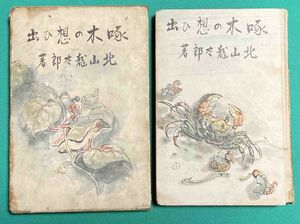 啄木の想ひ出
北山龍太郎著
啄木の想ひ出
北山龍太郎著